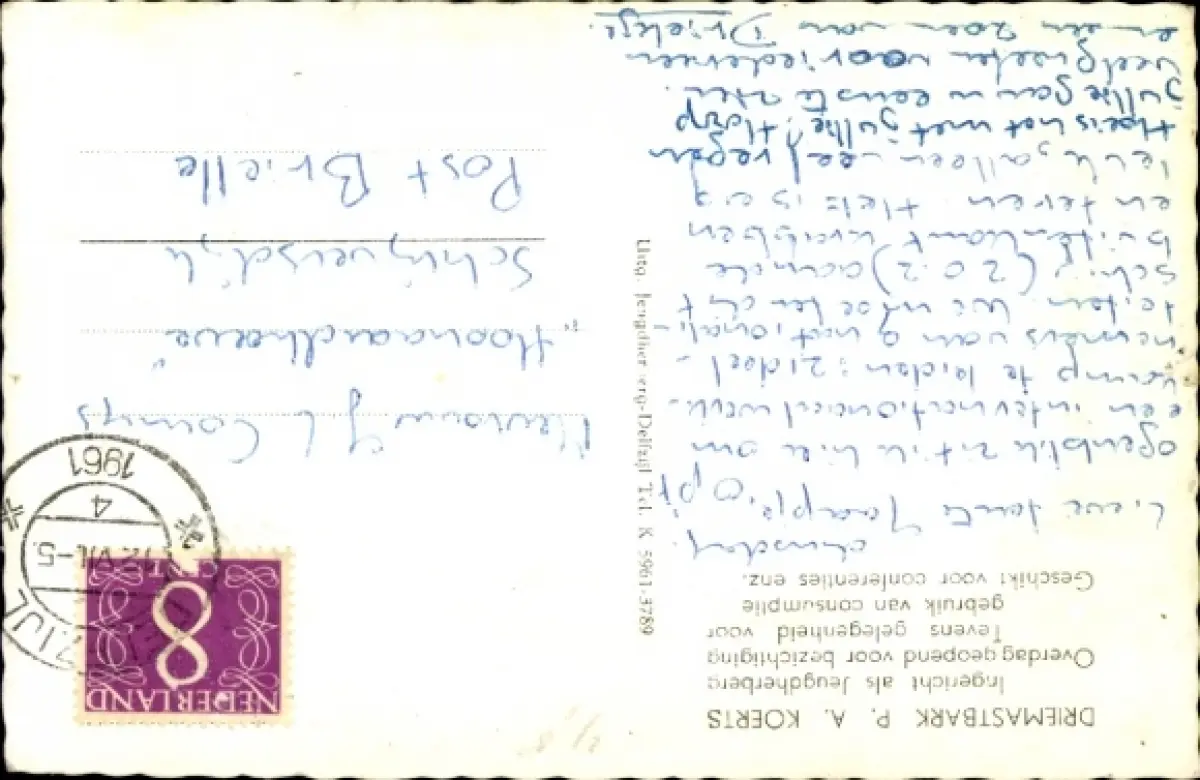 DRIEMASTBARK P. A. KOERTS
Ingericht als Jeugdherberg
Overdag geopend voor bezichtiging
Tevens gelegenheid voor
gebruik van consumptie
Geschikt voor conferenties enz.
dinsdag.
Lieve tante Jaapje, Op 't
ogenblik zit ik hier om
een internationaal werk-
kamp te leiden: 21 deel-
nemers van 9 nationali-
teiten. We moeten dit
schip (202) aan de
buitenkant krabben
en teren Het is erg
leuk, alleen veel regen
Hoe is het met jullie? Hoop
jullie gauw eens te zien.
veel groeten voor iedereen
en een zoen van Driekje.
Uitg. Jeugdherberg-Delfzijl Tel. K 5961-3789
Mevrouw J L
"Hoonaardhoeve"
Schrijversdijk
Post Brielle
NEDERLAND
8
CENT
DELFZIJL
12.VII.-5.
4
1961